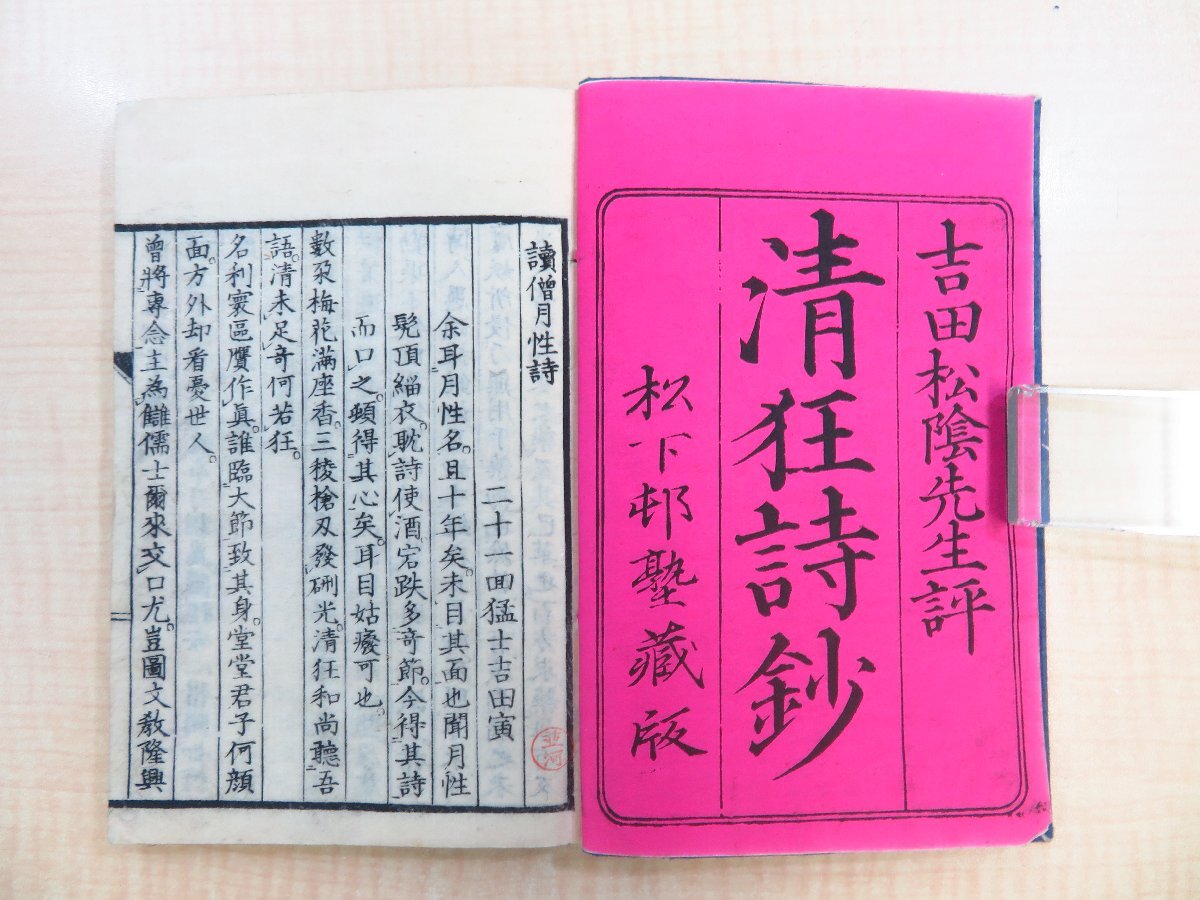 吉田松陰先生評
清狂詩鈔
松下邨塾藏版
讀僧月性詩
二十一回猛士吉田寅
余耳月性名。且十年矣。未目其面也聞月性
髠頂緇衣。耽詩使酒。宕跌多奇節。今得其詩
而口之。頓得其心矣。耳目姑癈可也。
數朶梅花滿座香。三稜槍刃發硎光。清狂和尚聽吾
語。清未足奇何若狂。
名利寰區贋作眞。誰臨大節致其身。堂堂君子何顏
面。方外却看憂世人。
曾將專念主為讎。儒士爾來交口尤。豈圖文教隆興